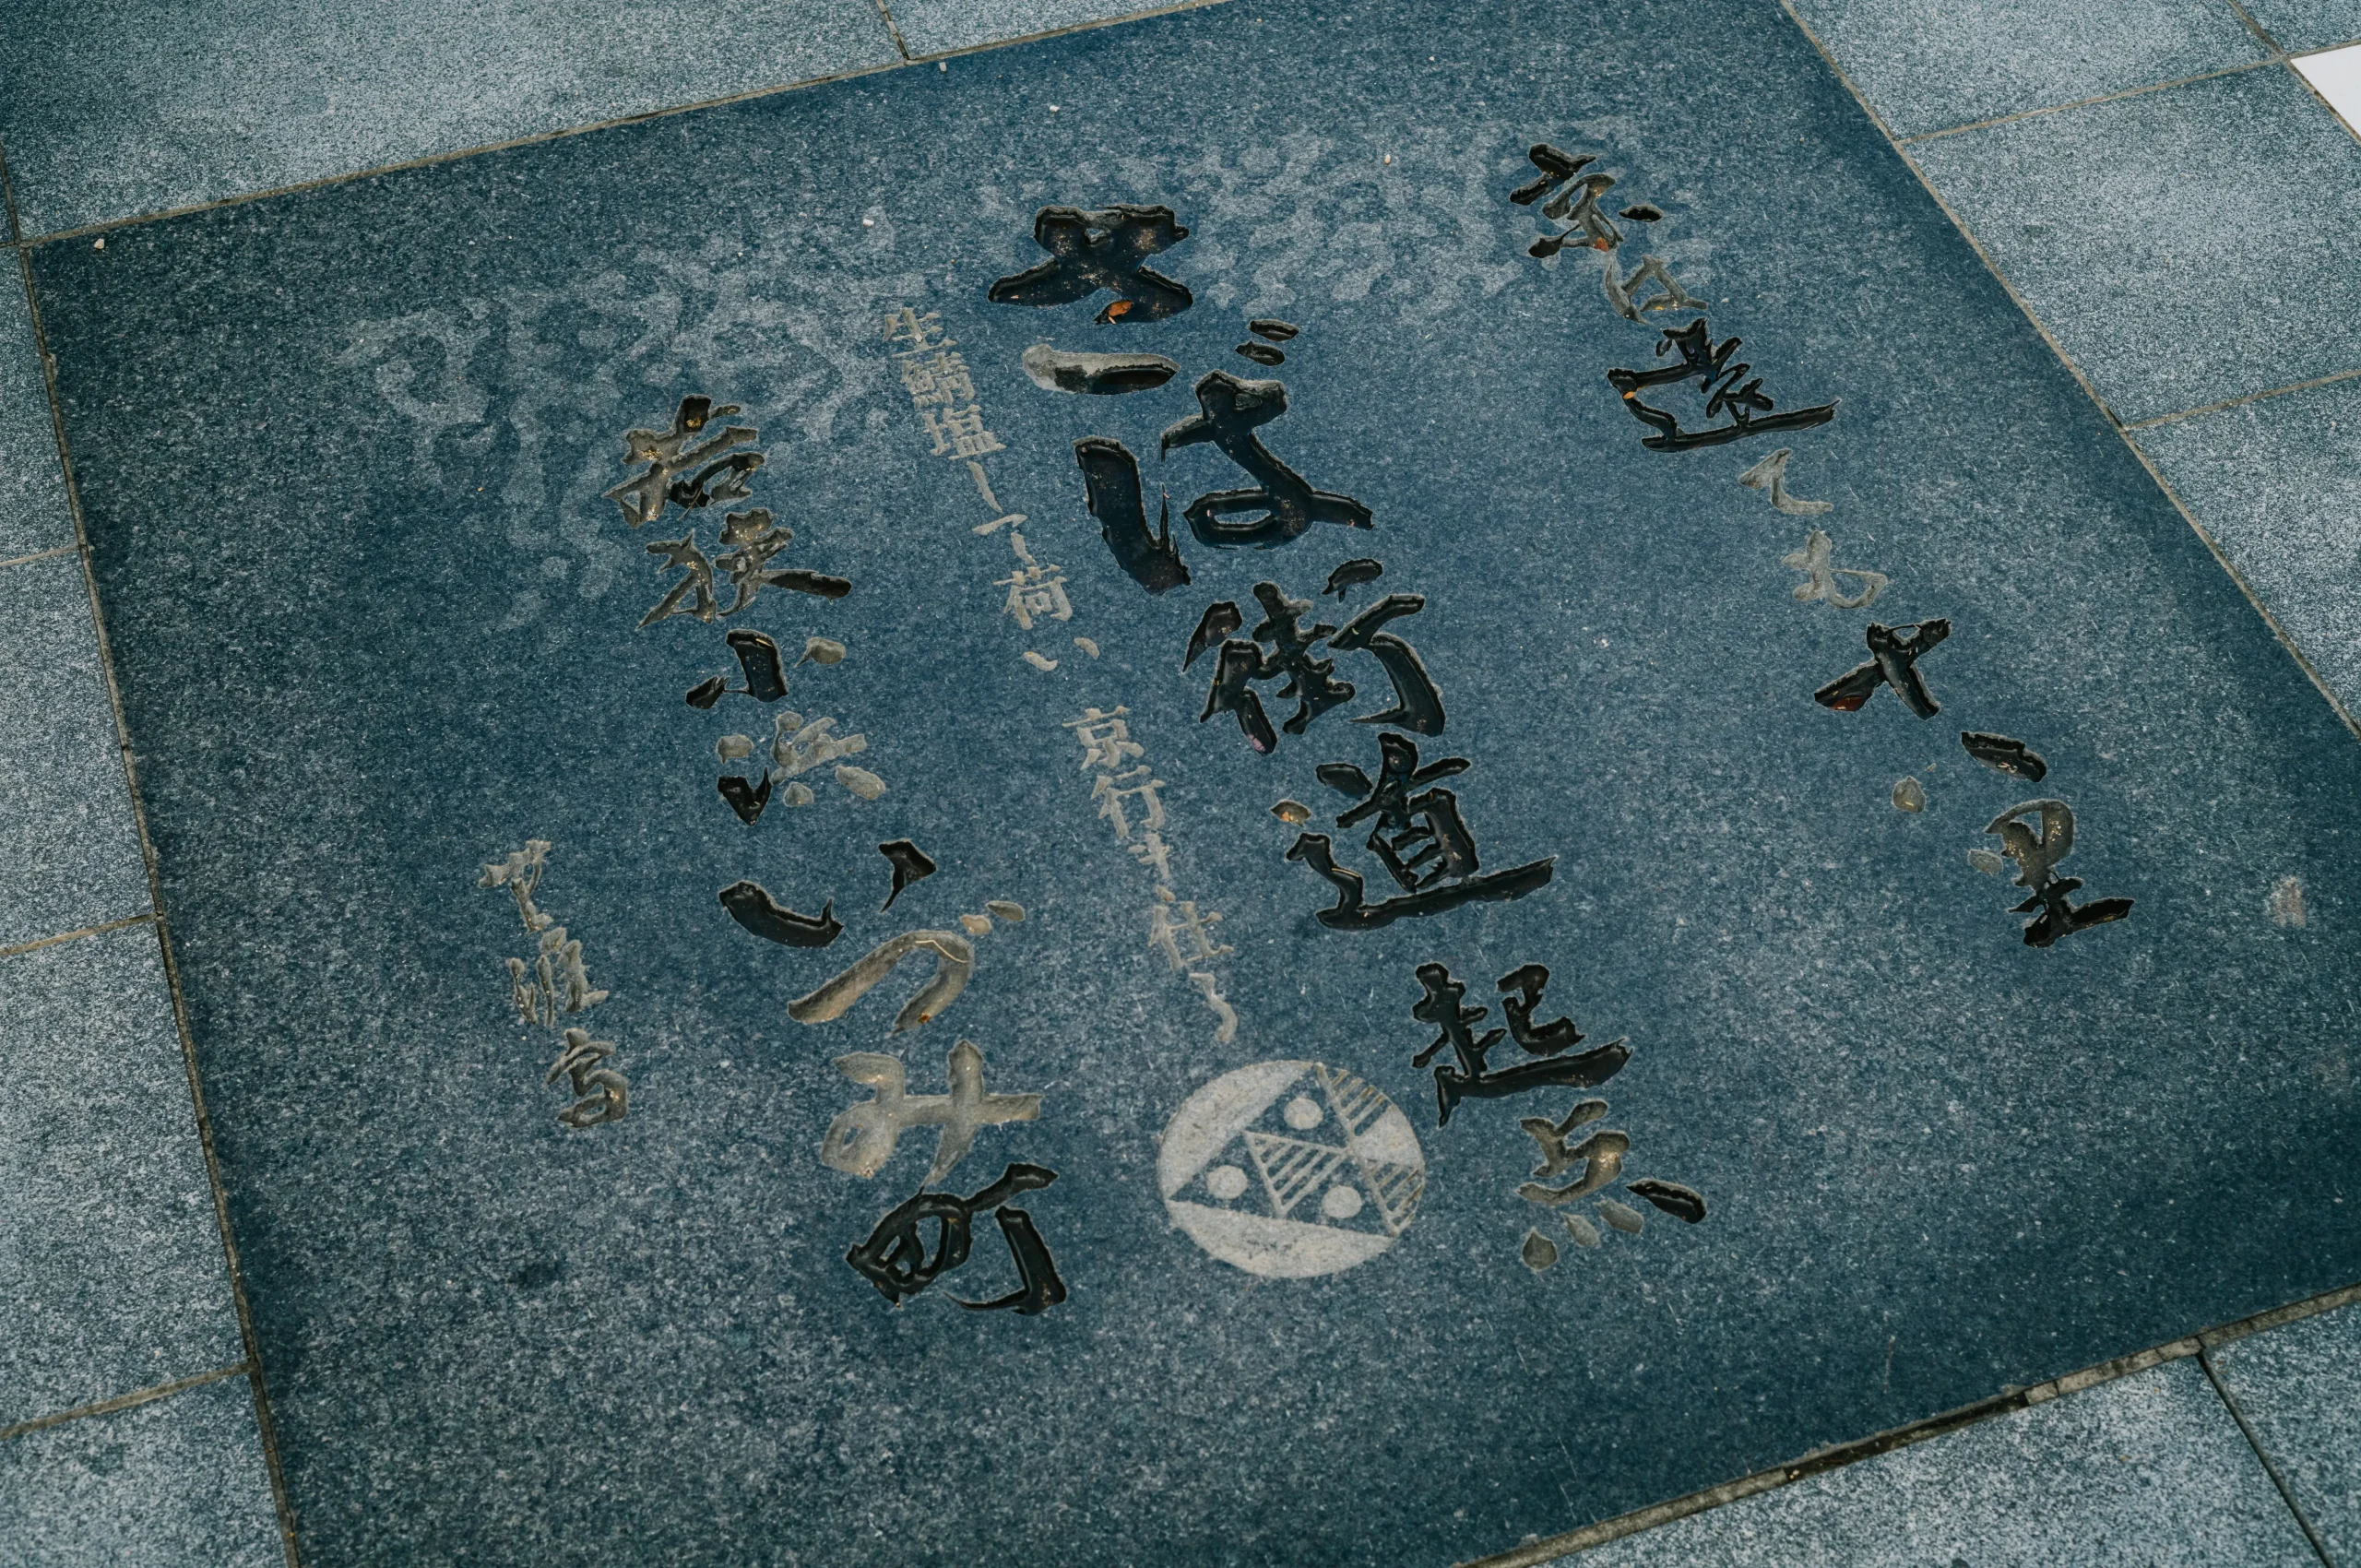 京は遠ても十八里
さば街道起点
生鯖塩して荷い
京行き仕る
若狭小浜いづみ町